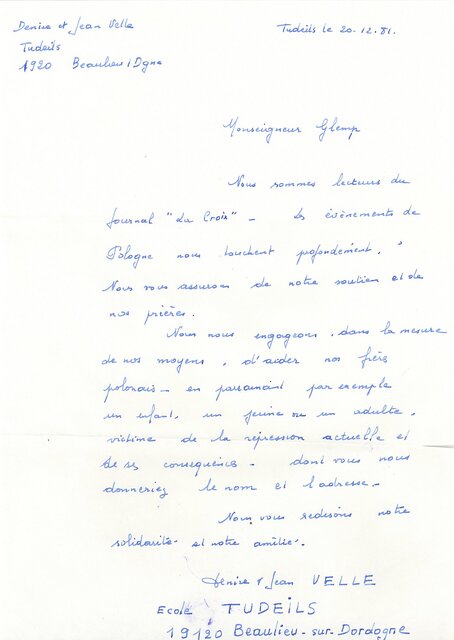 Denise et Jean Velle
Tudeils
1920 Beaulieu s/Dgne
Tudeils le 20.12.81.
Monseigneur Glemp
Nous sommes lecteurs du
journal "La Croix" - Les évènements de
Pologne nous touchent profondément.
Nous vous assurons de notre soutien et de
nos prières.
Nous nous engageons, dans la mesure
de nos moyens, d'aider nos frères
polonais - en parrainant par exemple
un enfant, un jeune ou un adulte,
victime de la répression actuelle et
de ses conséquences - dont vous nous
donneriez le nom et l'adresse.-
Nous vous redisons notre
solidarité et notre amitié.
Denise & Jean VELLE
Ecole TUDEILS
19120 Beaulieu-sur-Dordogne